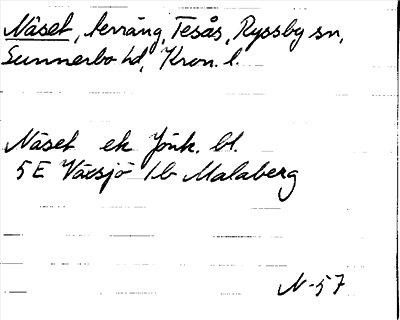 Näset, terräng, Tesås, Ryssby sn,
Sunnerbo hd, Kron. l.
Näset ek Jönk. bl.
5E Växsjö 1b Malaberg
N-57